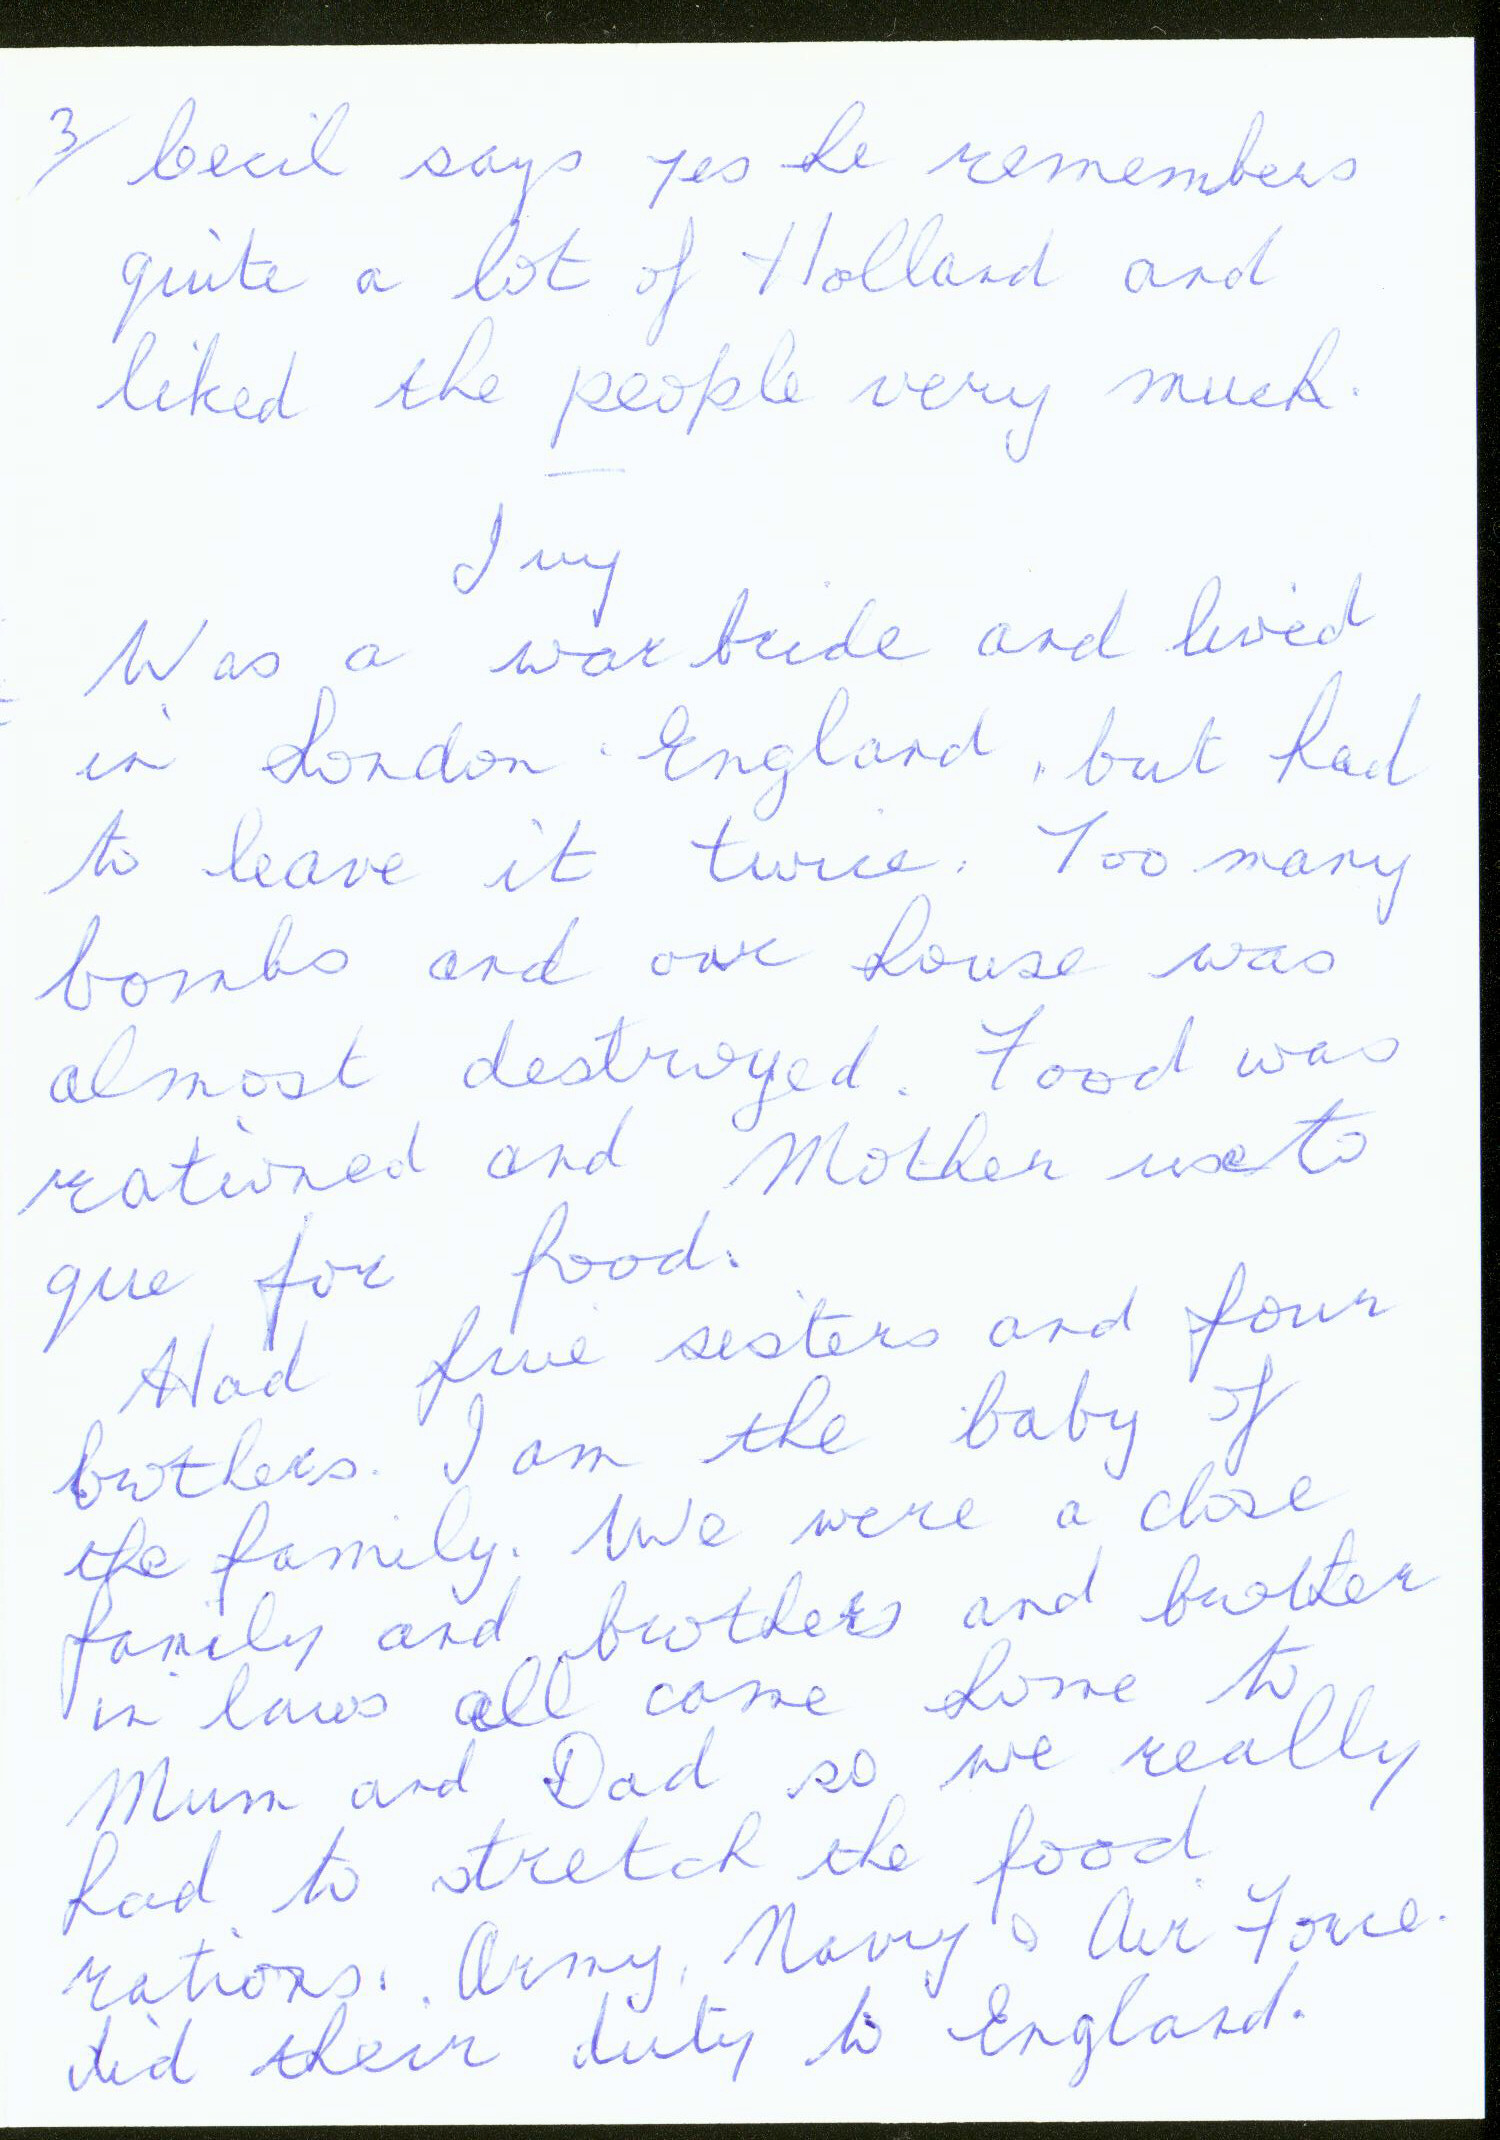 3/ Cecil says yes he remembers
quite a lot of Holland and
liked the people very much.
Ivy
Was a war bride and lived
in London. England, but had
to leave it twice. Too many
bombs and our house was
almost destroyed. Food was
rationed and Mother use to
que for food.
Had five sisters and four
brothers. I am the baby of
the family. We were a close
family and brothers and brother
in laws all come home to
Mum and Dad so we really
had to stretch the food
rations. Army, Navy & Air Force.
did their duty to England.